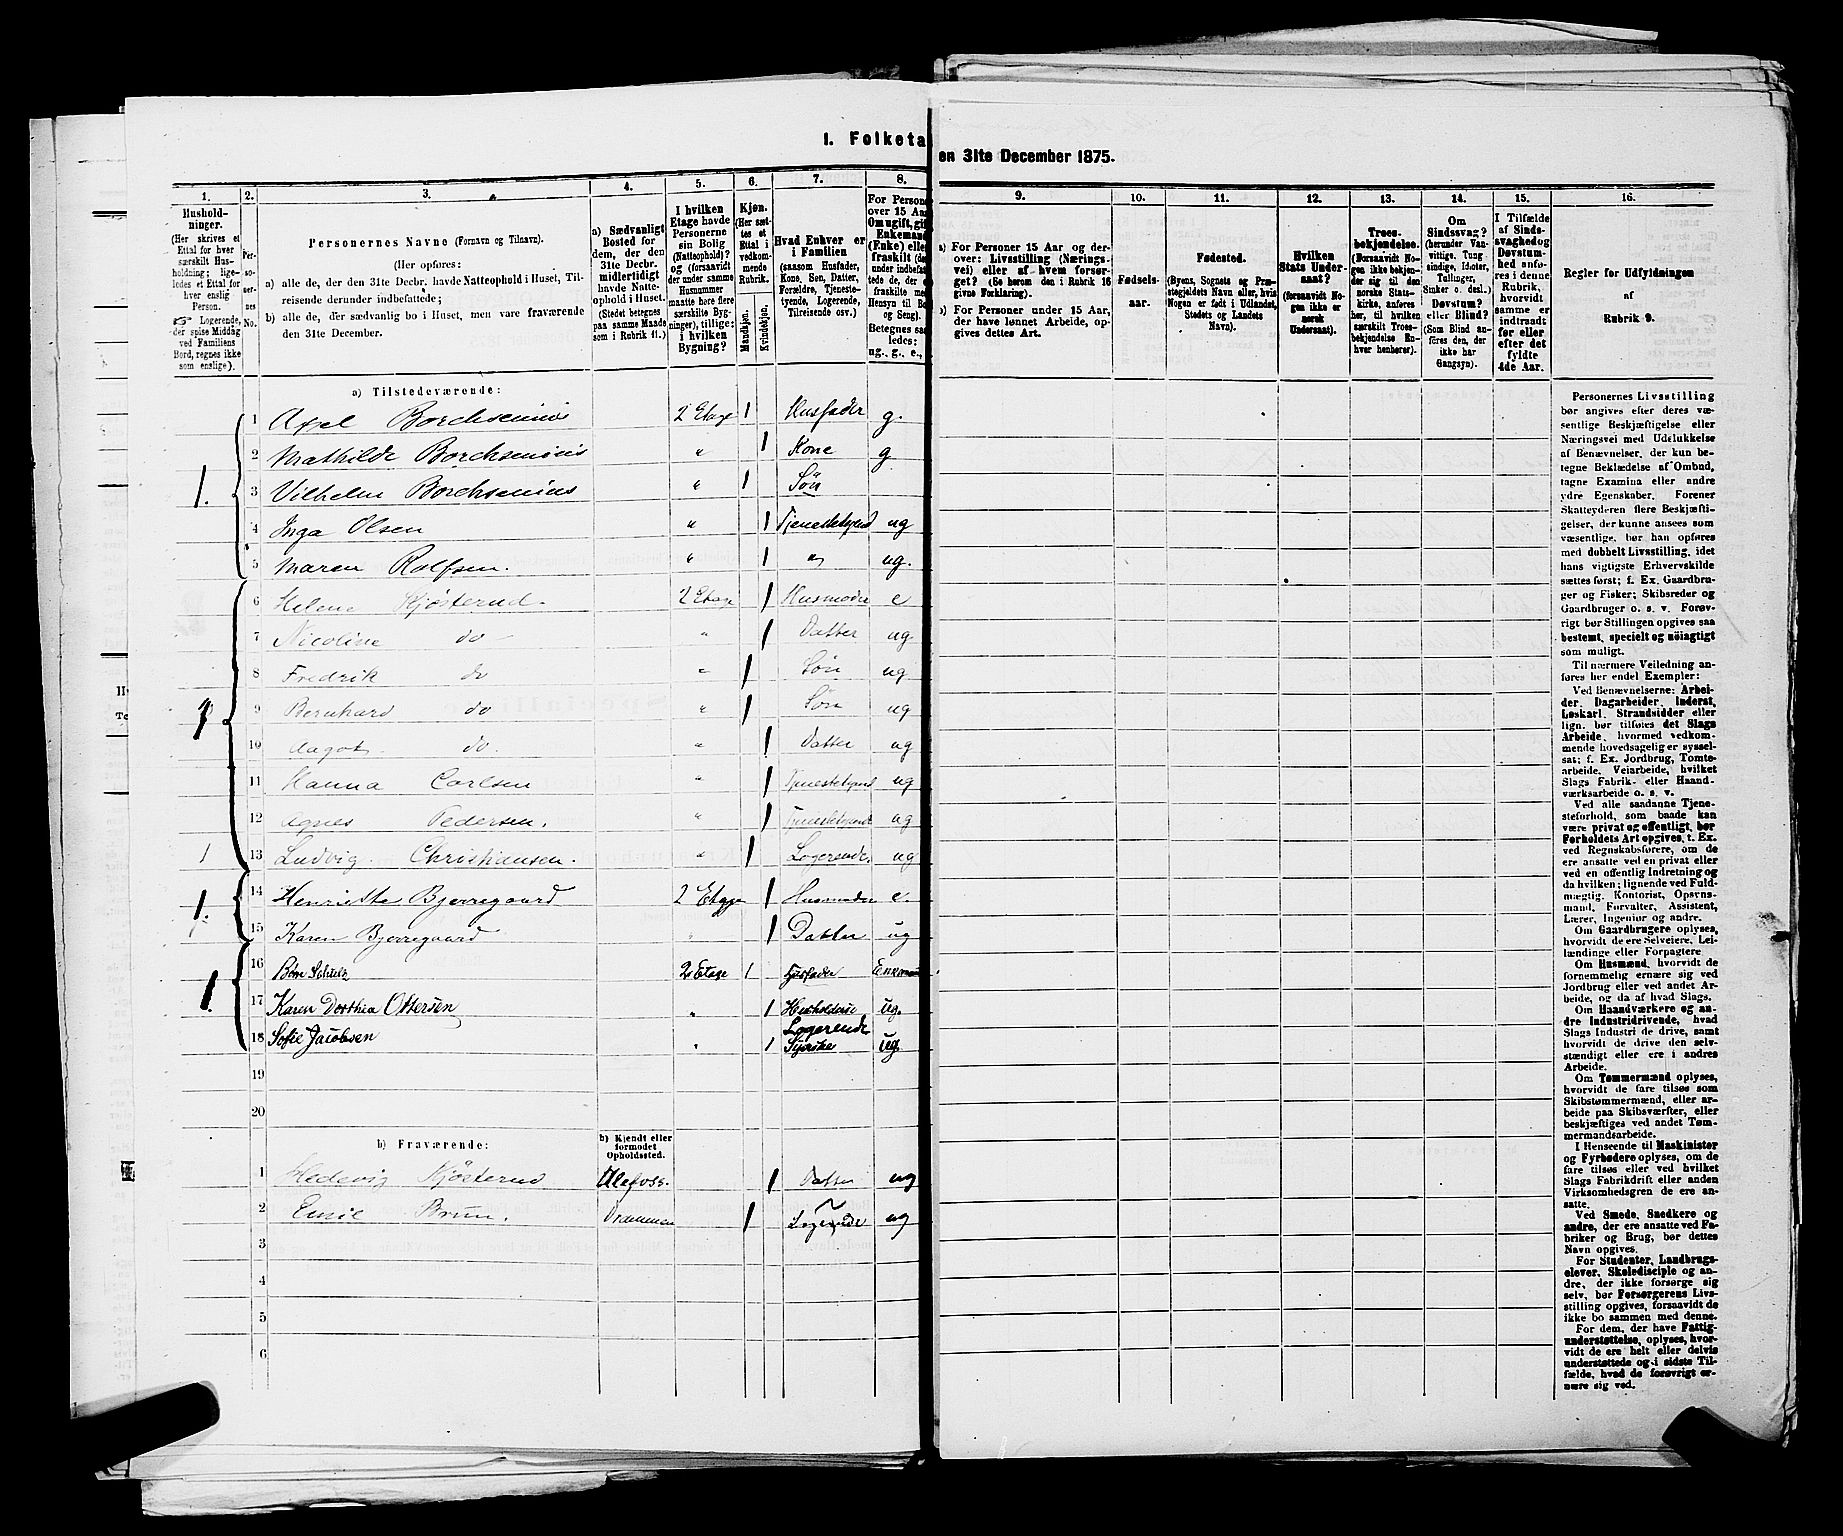 1. Folketa
en 31te December 1875.
1. 2. 3. 4. 5. 6. 7. 8.
Hushold-
ninger.
(Her skrives et
Ettal for hver
særskilt Hus-
holdning; lige-
ledes et Ettal for
hver enslig
Person.
☞ Logerende,
der spise Middag
ved Familiens
Bord, regnes ikke
som enslige).
Per-
so-
ner-
nes
No.
Personernes Navne (Fornavn og Tilnavn).
(Her opføres:
a) alle de, der den 31te Decbr. havde Natteophold i Huset, Til-
reisende derunder indbefattede;
b) alle de, der sædvanlig bo i Huset, men vare fraværende
den 31te December.
a) Sædvanligt
Bosted for
dem, der den
31te Decbr.
midlertidigt
havde Natte-
ophold i Huset.
(Stedet betegnes
paa samme Maade
som i Rubrik 11.)
I hvilken
Etage havde
Personerne
sin Bolig
(Natteophold)?
og (forsaavidt
der under samme
Husnummer
maatte høre flere
særskilte Byg-
ninger), tillige:
i hvilken
Bygning?
Kjøn.
(Her sæt-
tes et
Ettal i
vedkom-
mende
Rubrik.
Mandkjøn.
Kvindekjøn.
Hvad Enhver er
i Familien
(saasom Husfader,
Kone, Søn, Datter,
Forældre, Tjeneste-
tyende, Logerende,
Tilreisende osv.)
For Persone
over 15 Aar
Om ugift, gif
Enkemand
(Enke) elle
fraskilt (de
under indbefat
tede de, der e
fraskilte me
Hensyn til Bo
og Seng).
Betegnes saa
ledes:
ug., g., e.,
a) Tilstedeværende:
1. 1 Axel Borchsenius 2 Etage 1 Husfader g.
2 Mathilde Borchsenius " 1 Kone g
3 Vilhelm Borchsenius " 1 Søn
4 Inga Olsen " 1 Tjenestetyend ug
5 Maren Rolfsen. " 1 " ug.
6 Helene Kjøsterud. 2 Etage 1 Husmoder e
7 Nicoline do " 1 Datter ug
8 Fredrik do " 1 Søn ug
9 Bernhard do " 1 Søn ug
10 Aagot do. " 1 Datter ug
11 Hanna Carlsen " 1 Tjenestetyend ug
12 Agnes Pedersen. " 1 Tjenestetyende ug
1 13 Ludvig Christiansen. " 1 Logerende ug
1. 14 Henriette Bjerregaard 2 Etage 1 Husmoder e.
15 Karen Bjerregaard " 1 Datter ug
1. 16 Schulz 2 Etage 1 Husfader
17 Karen Dorthea Ottersen " 1 Husholderse ug.
18 Sofie Jacobsen " 1 Logerende
Syerske ug.
19
20
b) Fraværende:
b) Kjendt eller
formodet
Opholdssted.
1 Hedevig Kjøsterud Ulefoss. 1 Datter ug
2 Emil Brun. Drammen 1 Logerende ug
3
4
5
6
9. 10. 11. 12. 13. 14. 15. 16.
a) For Personer 15 Aar og der-
over: Livsstilling (Nærings-
vei) eller af hvem forsør-
get? (Se herom den i Rubrik 16
givne Forklaring).
b) For Personer under 15 Aar,
der have lønnet Arbeide, op-
gives dettes Art.
Fødsels-
aar.
Fødested.
(Byens, Sognets og Præ-
stegjeldets Navn eller, hvis
Nogen er født i Udlandet,
Stedets og Landets
Navn).
Hvilken
Stats Under-
saat?
(forsaavidt No-
gen ikke er
norsk
Undersaat).
Troes-
bekjendelse.
(Forsaavidt No-
gen ikke bekjen-
der sig til den
norske Stats-
kirke, anføres
her, til hvilken
særskilt Troes-
bekjendelse En-
hver henhører).
Om
Sindssvag?
(herunder Van-
vittige, Tung-
sindige, Idioter,
Tullinger,
Sinker o. desl.)
Døvstum?
eller Blind?
(Som Blind an-
føres den, der
ikke har
Gangsyn).
I Tilfælde
af Sinds-
svaghed og
Døvstum-
hed anfø-
res i denne
Rubrik,
hvorvidt
samme er
indtraadt
før eller
efter det
fyldte
4de Aar.
Regler for Udfyldningen
af
Rubrik 9.
Personernes Livsstilling
bør angives efter deres væ-
sentlige Beskjæftigelse eller
Næringsvei med Udelukkelse
af Benævnelser, der kun be-
tegne Beklædelse af Ombud,
tagne Examina eller andre
ydre Egenskaber. Forener
Skatteyderen flere Beskjæfti-
gelser, der kunne ansees som
væsentlige, bør han opføres
med dobbelt Livsstilling, idet
hans vigtigste Erhvervskilde
sættes først; f. Ex. Gaardbru-
ger og Fisker; Skibsreder og
Gaardbruger o. s. v. Forøv-
rigt bør Stillingen opgives saa
bestemt, specielt og nøiagtigt
som muligt.
Til nærmere Veiledning an-
føres her endel Exempler:
Ved Benævnelserne: Arbei-
der, Dagarbeider, Inderst,
Løskarl, Strandsidder eller
lign. bør tilføies det Slags
Arbeide, hvormed vedkom-
mende hovedsagelig er syssel-
sat; f. Ex. Jordbrug, Tomte-
arbeide, Veiarbeide, hvilket
Slags Fabrik- eller Haand-
værksarbeide o. s. v.
Ved alle saadanne Tjene-
steforhold, som baade kan
være privat og offentligt, bør
Forholdets Art opgives, t. Ex.
ved Regnskabsførere, om de
ere ansatte ved en privat eller
ved en offentlig Indretning og
da hvilken; lignende ved Fuld-
mægtig, Kontorist, Opsyns-
mand, Forvalter, Assistent,
Lærer, Ingeniør og andre.
Om Gaardbrugere oplyses,
hvorvidt de ere Selveiere, Lei-
lændinge eller Forpagtere.
Om Husmænd, hvorvidt de
fornemmelig ernære sig ved
Jordbrug eller ved andet Ar-
beide, og da af hvad Slags.
Om Haandværkere og an-
dre Industridrivende, hvad
Slags Industri de drive, samt
hvorvidt de drive den selv-
stændigt eller ere i andres
Arbeide.
Om Tømmermænd oplyses,
hvorvidt de fare tilsøs som
Skibstømmermænd, eller ar-
beide paa Skibsværfter, eller
beskjæftiges ved andet Tøm-
mermandsarbeide.
I Henseende til Maskinister
og Fyrbødere oplyses, om de
fare tilsøs eller ved hvilket
Slags Fabrikdrift eller anden
Virksomhedsgren de ere an-
satte.
Ved Smede, Snedkere og
andre, der ere ansatte ved Fa-
briker og Brug, bør dettes
Navn opgives.
For Studenter, Landbrugs-
elever, Skoledisciple og an-
dre, der ikke forsørge sig
selv, bør Forsørgerens Livs-
stilling opgives, forsaavidt de
ikke bo sammen med denne.
For dem, der have Fattig-
understøttelse, oplyses, hvor-
vidt de ere helt eller delvis
understøttede og i sidste Til-
fælde, hvad de forøvrigt er-
nære sig ved.